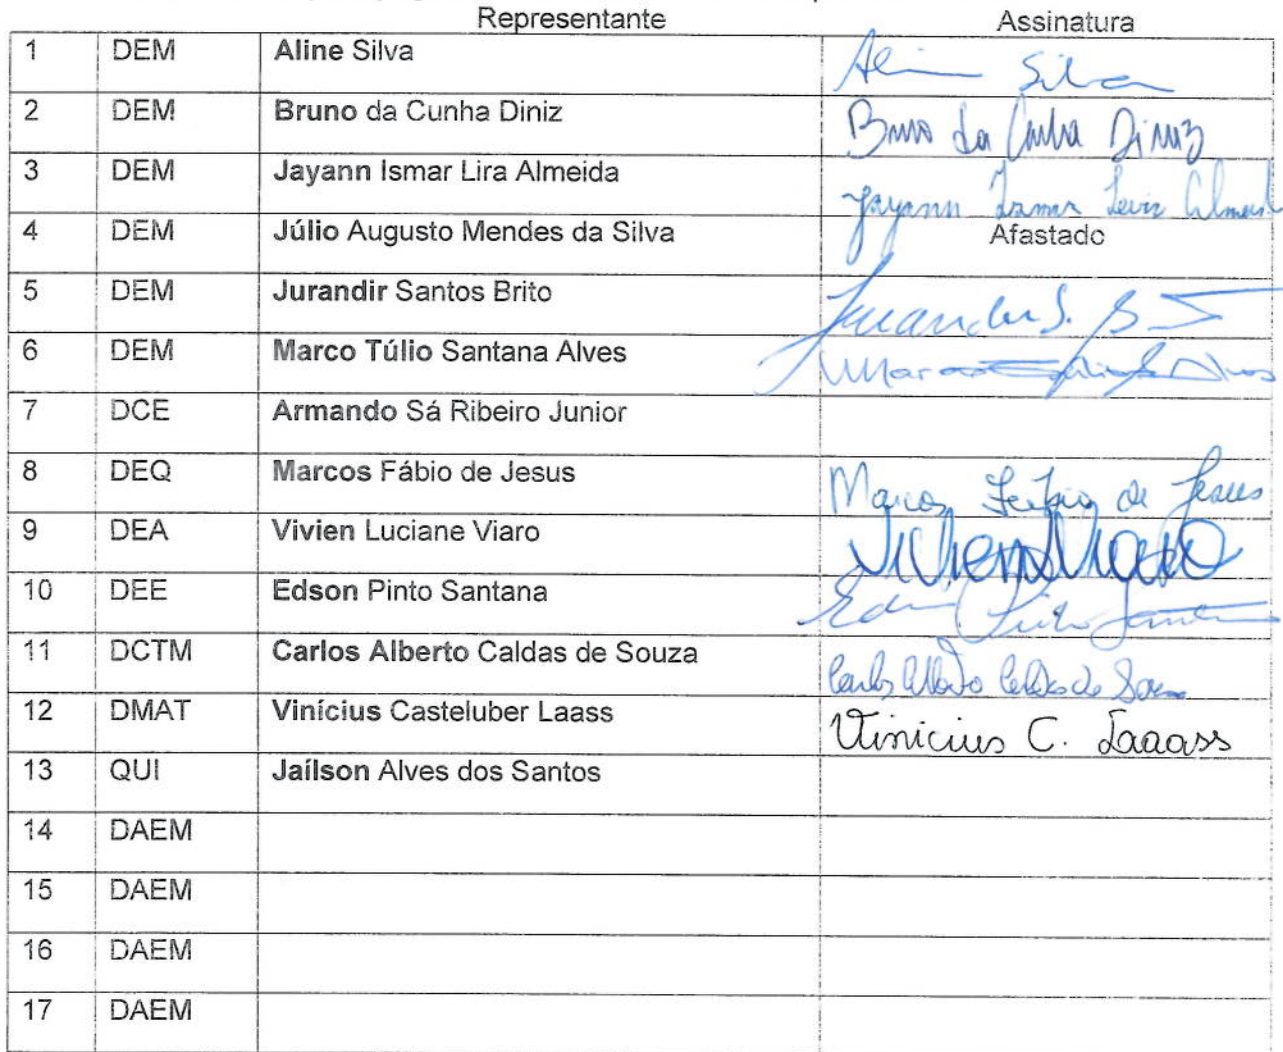 Representante Assinatura
1 DEM Aline Silva Aline Silva
2 DEM Bruno da Cunha Diniz Bruno da Cunha Diniz
3 DEM Jayann Ismar Lira Almeida Jayann Ismar Lira Almeida
4 DEM Júlio Augusto Mendes da Silva Afastado
5 DEM Jurandir Santos Brito Jurandir S. B
6 DEM Marco Túlio Santana Alves Marco Alves
7 DCE Armando Sá Ribeiro Junior
8 DEQ Marcos Fábio de Jesus Marcos Fábio de Jesus
9 DEA Vivien Luciane Viaro Vivien Viaro
10 DEE Edson Pinto Santana Edson Pinto Santana
11 DCTM Carlos Alberto Caldas de Souza Carlos Alberto Caldas de Souza
12 DMAT Vinícius Casteluber Laass Vinicius C. Laass
13 QUI Jaílson Alves dos Santos
14 DAEM
15 DAEM
16 DAEM
17 DAEM